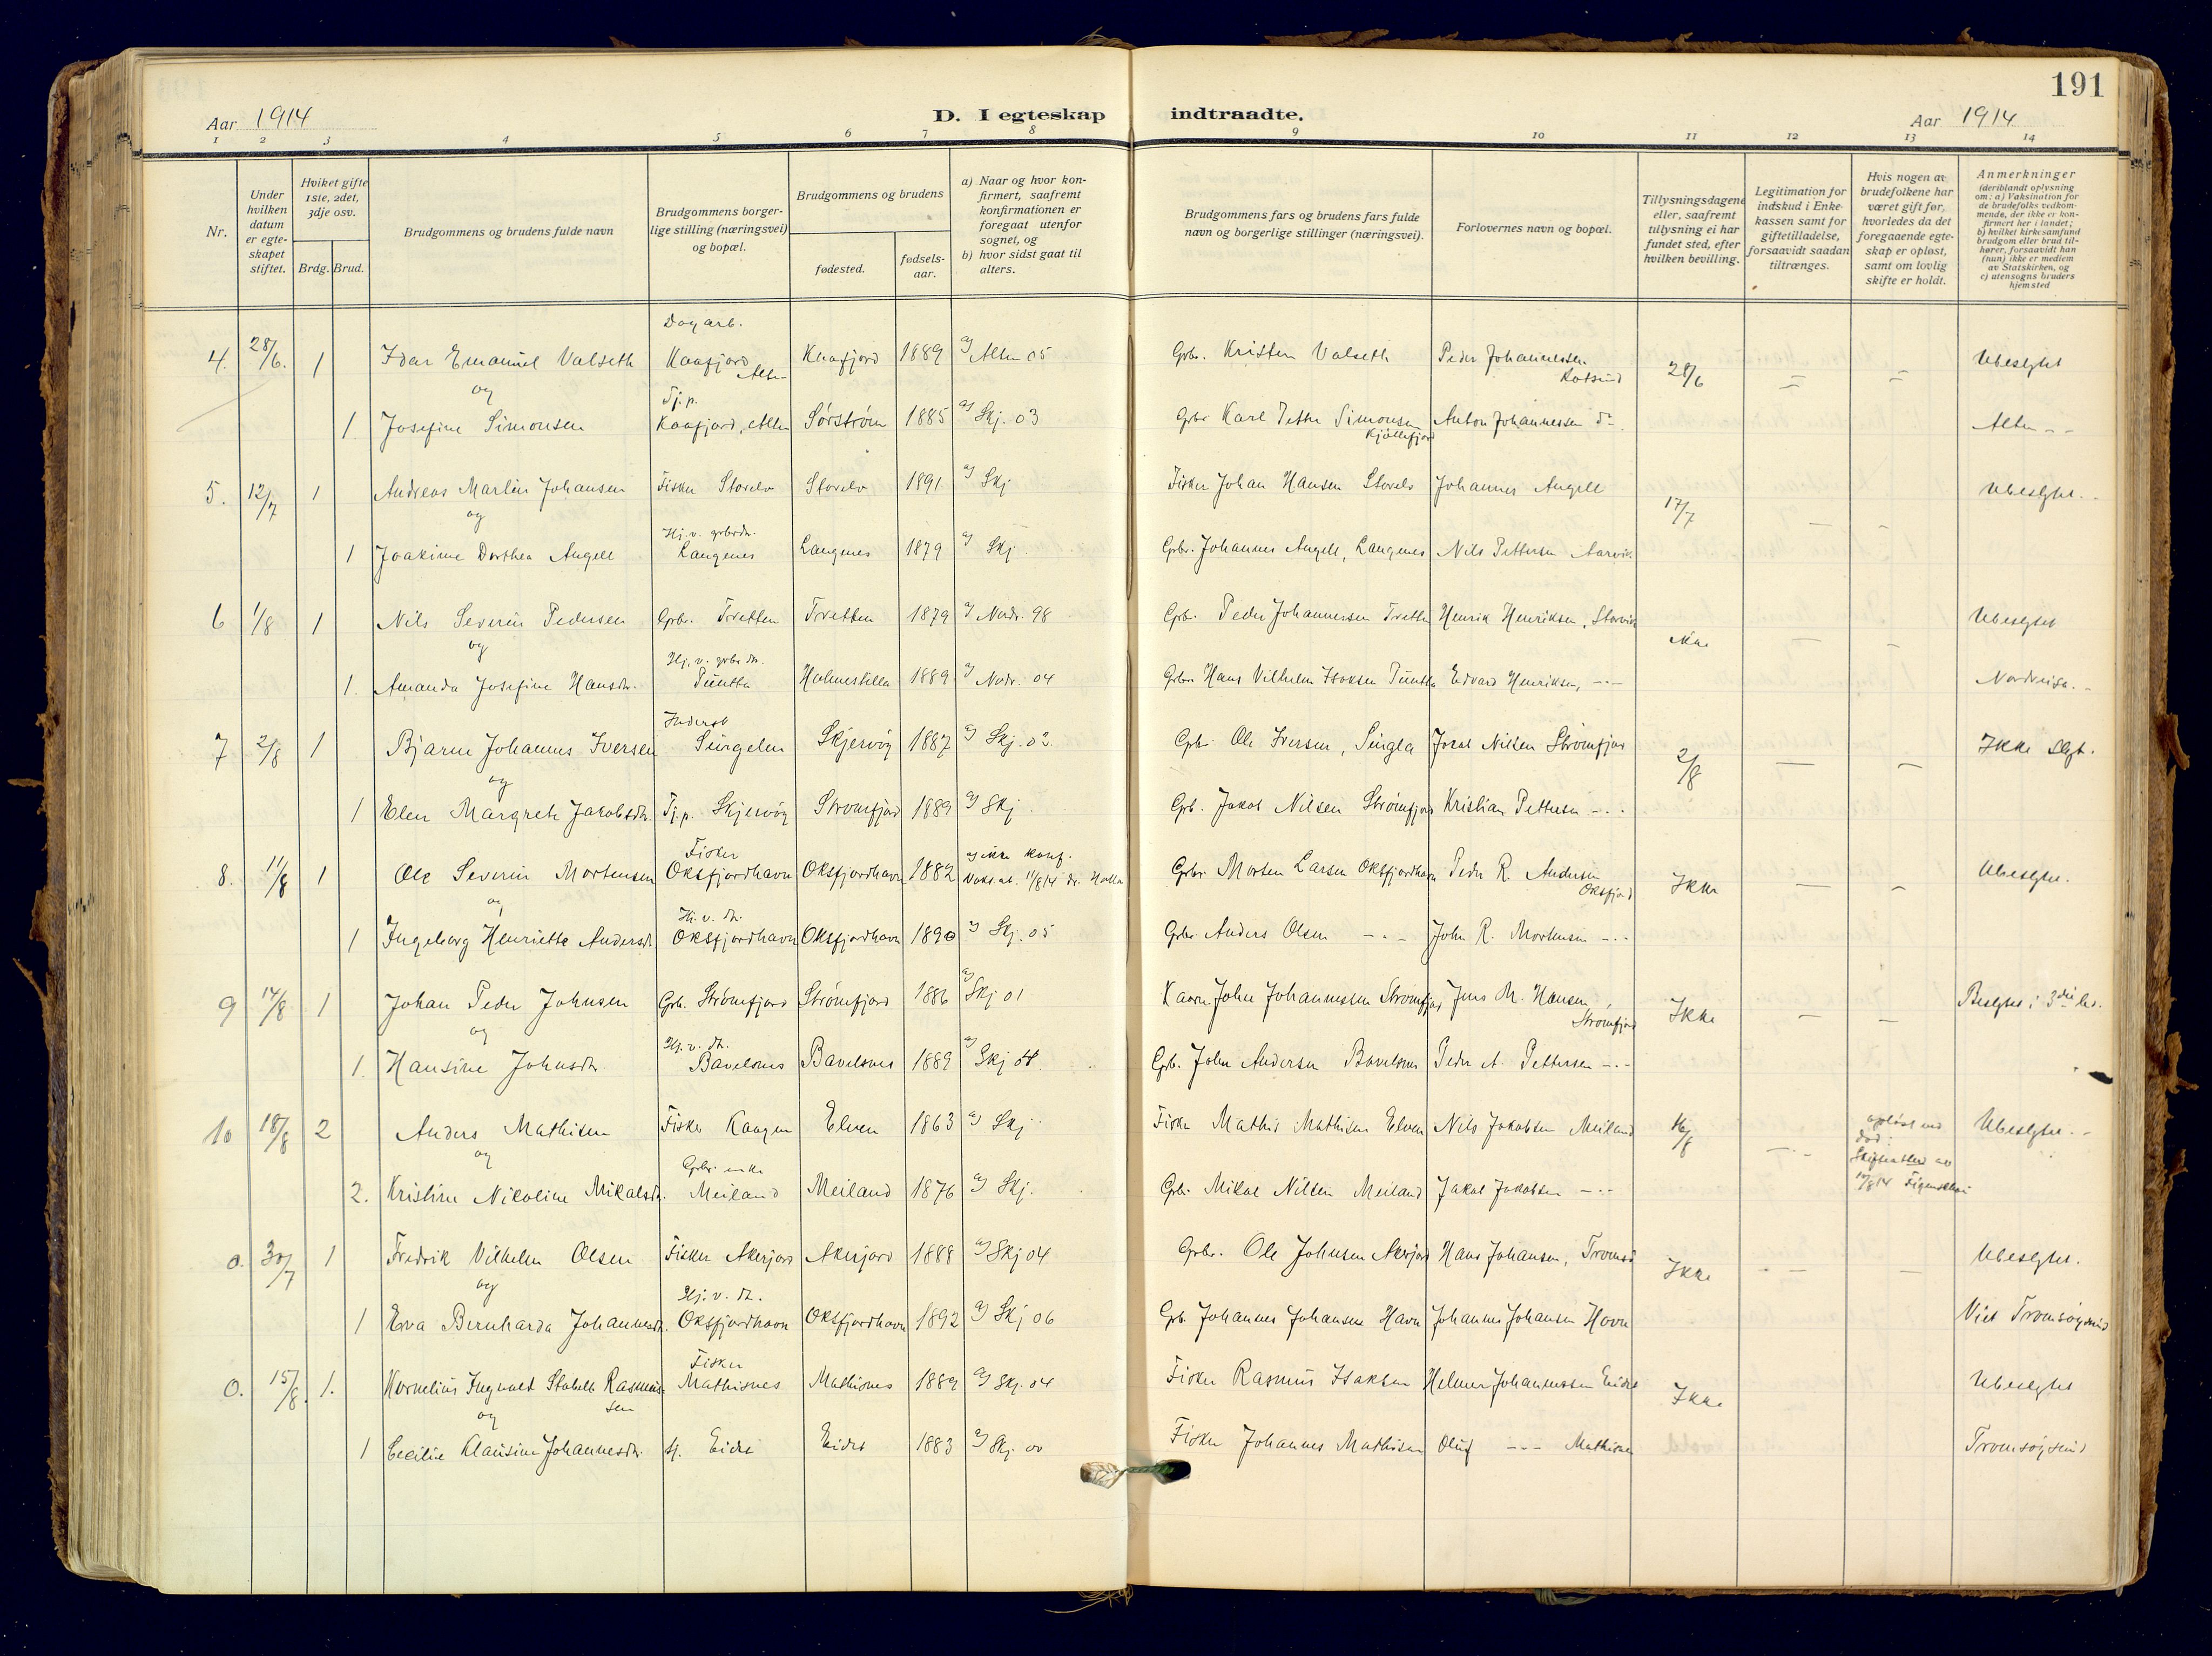 191
Aar 1914
D. I egteskap indtraadte.
Aar 1914
1 2 3 4 5 6 7 8 9 10 11 12 13 14
Nr.
Under hvilken datum er egteskapet stiftet.
Hviket gifte 1ste, 2det, 3dje osv.
Brdg. Brud.
Brudgommens og brudens fulde navn
Brudgommens borgerlige stilling (næringsvei) og bopæl.
Brudgommens og brudens
fødested.
fødselsaar.
a) Naar og hvor konfirmert, saafremt konfirmationen er foregaat utenfor sognet, og
b) hvor sidst gaat til alters.
Brudgommens fars og brudens fars fulde navn og borgerlige stillinger (næringsvei).
Forlovernes navn og bopæl.
Tillysningsdagene eller, saafremt tillysning ei har fundet sted, efter hvilken bevilling.
Legitimation for indskud i Enkekassen samt for giftetilladelse, forsaavidt saadan tiltrænges.
Hvis nogen av brudefolkene har været gift før, hvorledes da det foregaaende egteskap er opløst, samt om lovlig skifte er holdt.
Anmerkninger
(deriblandt oplysning om: a) Vaksination for de brudefolks vedkommende, der ikke er konfirmert her i landet; b) hvilket kirkesamfund brudgom eller brud tilhører, forsaavidt han (hun) ikke er medlem av Statskirken, og c) utensogns bruders hjemsted
Dagarb.
4. 28/6. 1 Idar Emanuel Valseth Kaafjord Alten Kaafjord 1889 a) Alten 05 Grb. Kristen Valseth Peder Johannessen Rotsund 28/6 — — Ubeslgtet
og
Tj.p.
1 Josefine Simonsen Kaafjord, Alten Sørstrøm 1885 a) Skj. 03 Grbr Karl Petter Simonsen Kjøllefjord Anton Johannessen do. Alten
5. 12/7 1 Andreas Martin Johansen Fisker Storelv Storelv 1891 a) Skj Fisker Johan Hansen Storelv Johannes Angell 17/7 — — Ubeslgtet.
og
Hj.v. grbrdr.
1 Joakime Dorthea Angell Langenes Langenes 1879 a) Skj. Grbr. Johannes Angell, Langenes Nils Pettersen Aarvik
6 1/8 1 Nils Severin Pedersen Grbr. Tretten Tretten 1879 a) Nordr. 98 Grb. Peder Johannessen Tretten Henrik Henriksen, Storvik Ikke — — Ubeslgtet
og
Hj. v. grbr dr.
1. Amanda Josefine Hansdr. Punta Holmestillen 1889 a) Nordr. 04 Grbr. Hans Vilhelm Isaksen Punta Edvard Henriksen, -"- Nordreisa.
7 2/8 1 Bjarne Johannes Iversen Singelen Skjervøy 1887 a) Skj. 02. Grbr. Ole Iversen, Singla Jakob Nilsen Strømfjord 2/8 — — Ikke slgt.
og
1 Elen Margrete Jakobsdtr. Tj.p. Skjervøy Strømfjord 1889 a) Skj. Grb. Jakob Nilsen Strømfjord Kristian Pettersen -"-
Fisker
8. 11/8 1 Ole Severin Mortensen Oksfjordhavn Oksfjordhavn 1882 a) ikke konf. Vaks.at. 11/8 14 dr. Holla Grbr. Morten Larsen Oksfjordhavn Peder R. Andersen Oksfjord Ikke — — Ubeslgtet.
og
Hj. v. dr.
1 Ingeborg Henriette Andersdr. Oksfjordhavn Oksfjordhavn 1890 a) Skj. 05 Grbr Anders Olsen -"- John R. Mortensen -"-
9 14/8 1 Johan Peder Johnsen Grb. Strømfjord Strømfjord 1886 a) Skj 01 John Johannessen Strømfjord Jens M. Hansen Strømfjord Ikke — — Beslgtet i 3die led.
og
Hj. v. dr.
1. Hansine Johnsdr. Bavelsnes Bavelsnes 1889 a) Skj 04. Grb. John Andersen Bavelsnes Peder A. Pettersen -"-
10 18/8 2 Anders Mathisen Fisker Kaagen Elven 1863 a) Skj Fisker Mathis Mathisen Elven Nils Jakobsen Meiland 16/8 — opløst ved død. Skifteattest av 10/8 14 Ubeslgtet.
og
Grbr. enke
2. Kristine Nikoline Mikalsdr. Meiland Meiland 1876 a) Skj. Grb. Mikal Nilsen Meiland Jakob Jakobsen -"-
0. 30/7 1 Fredrik Vilhelm Olsen Fisker Akerjord Akerjord 1888 a) Skj 04 Grbr. Ole Johnsen Akerjord Hans Johansen, Tromsø Ikke — — Ubeslgtet.
og
Hj. v. dr.
1 Eva Bernharda Johannesdr. Oksfjordhavn Oksfjordhavn 1892 a) Skj 06 Grb. Johannes Johansen Havn Johannes Johansen Havn Viet Tromsøysund
Fisker
0. 15/8. 1. Kornelius Ingvald Stabell Rasmussen Mathisnes Mathisnes 1889 a) Skj. 04 Fisker Rasmus Isaksen Helmer Johannessen Eidet Ikke Ubeslgtet
og
1 Cecilie Klausine Johannesdr. Hj. Eidet Eidet 1883 a) Skj. 00 Fisker Johannes Mathisen Oluf -"- Mathisnes Tromsøysund